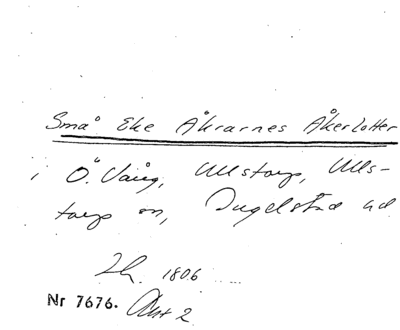 Små Eke Åkrarnes Åkerlotter
i Ö. Vång, Ullstorp, Ulls-
torps sn, Ingelstad hd
1806
Nr 7676. Akt 2